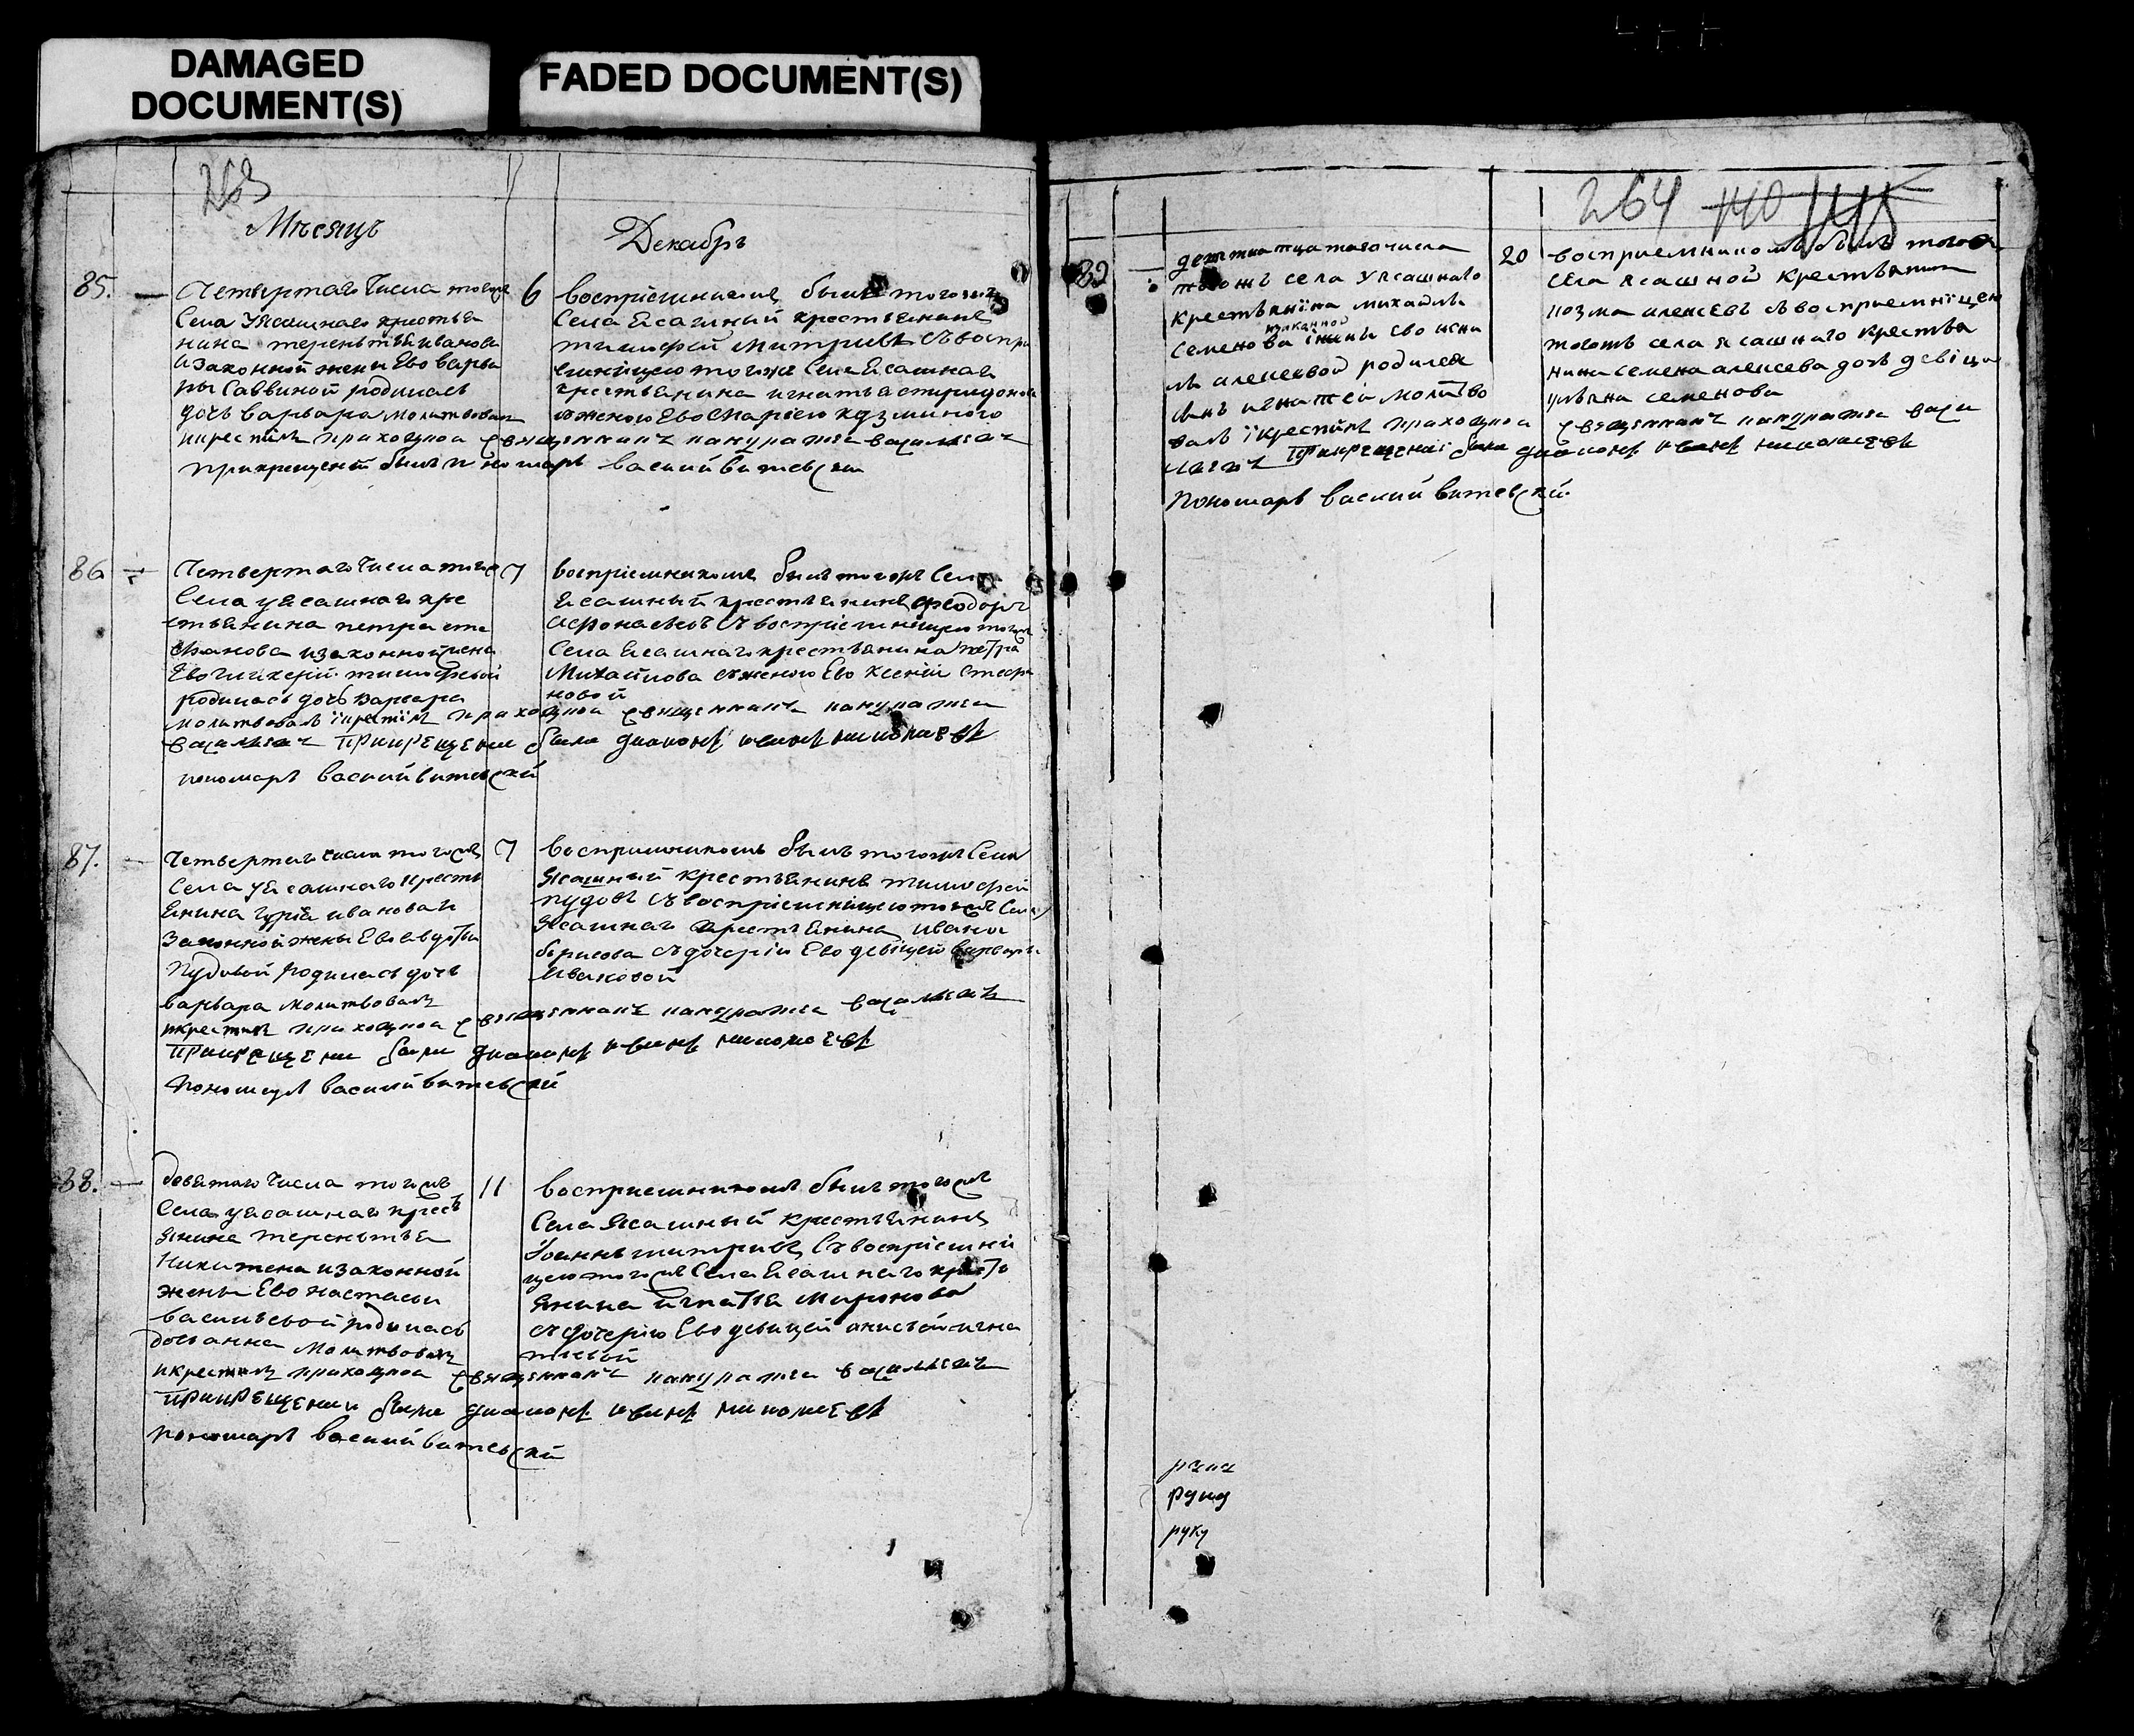 DAMAGED
DOCUMENT(S)
FADED DOCUMENT(S)
263
Мѣсяцъ
Декабрь
85.
Четвертаго числа тогожъ
Села Уясашнаго крестья
нина терентья иванова
изаконной жены Ево варва
ры Саввиной родилась
дочь варвара молитвовалъ
икрестилъ приходцкои священникъ панкратеи васильевъ
прикрещенiи былъ пономарь василий витевской
6
воспрiемникомъ былъ тогожъ
Села Ясашный крестьянинъ
тимофей Митриевъ Съвоспри
емницею тогожъ Села Ясашнаго
крестьянина игнатья спиридонова
зженою Ево Марiею кузминою
86
Четвертаго числа тогож
Села уясашнаго кре
стьянина петра сте
фанова изаконной жены
Ево гликерiй тимофеевой
родилась дочь варвара
молитвовалъ iкрестiлъ приходцкои священникъ панкратеи
васильевъ прикрещенiи были диаконъ иванъ николаевъ
пономарь василий витевской
7
воспрiемникомъ былъ тогожъ Села
Ясашный крестьянинъ феодоръ
Афонасьевъ Съвоспрiемницею тогож
Села Ясашнаго крестьянина петра
Михайлова зженою Ево Ксенiи стефа
новой
87.
Четвертаго числа тогожъ
Села уясашнаго кресть
янина гурiя иванова и
Законной жены Ево авдотьи
Пудовой родилась дочь
варвара молитвовалъ
икрестилъ приходцкои священникъ панкратеи васильевъ
прикрещенiи были диаконъ иванъ николаевъ
пономарь василий витевской
7
воспрiемникомъ былъ тогожъ Села
Ясашный крестьянинъ тимофей
пудовъ Съвоспрiемницею тогожъ Села
Ясашнаго крестьянина ивана
борисова сдочерiю Ево девiцей варвары
Ивановой
88.
девятаго числа тогожъ
Села уясашнаго кресть
янина терентья
Никитена изаконной
жены Ево настасьи
васильевой родилась
дочь анна молитвовалъ
икрестилъ приходцкои священникъ панкратеи васильевъ
прикрещенiи были диаконъ иванъ николаевъ
пономарь василий витевской
11
воспрiемникомъ былъ тогожъ
Села Ясашный крестьянинъ
Iоаннъ митриевъ Съвоспрiемнi
цею тогожъ Села Ясашнаго кресть
янина игнатья миронова
сдочерiю Ево девицей анисьей игна
тьевой
264 140
89
тогожъ села уясашнаго
крестьянiна михаила
семенова законной жены ево
алексеевой родился
сынъ игнатей молитво
валъ iкрестилъ приходцкои священникъ панкратеи васи
льевъ прикрещенiи были диаконъ иванъ николаевъ
пономарь василий витевской
20
восприемникомъ былъ тогож
села ясашной крестьянинъ
козма алексеевъ съвосприемнiцею
тогожъ села ясашнаго крестья
нина семена алексеева дочь девiца
ульяна семенова
руку